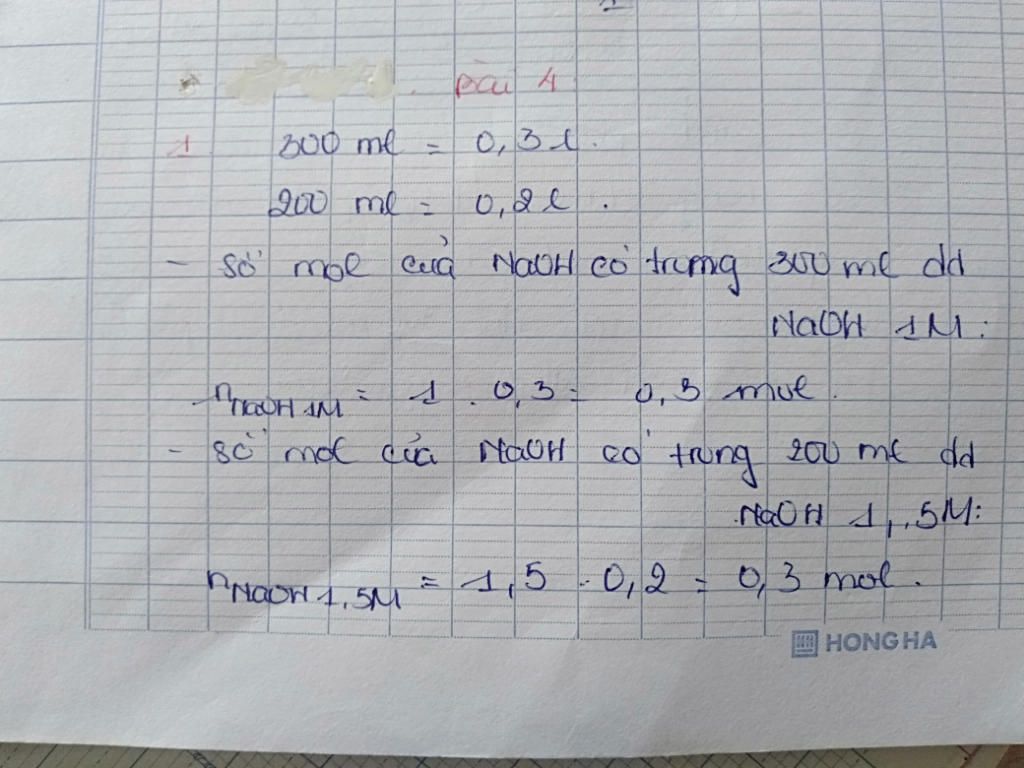 Bài 4
1 300 ml = 0,3 l.
200 ml = 0,2 l.
- Số mol của NaOH có trong 300 ml dd
NaOH 1M:
nNaOH 1M = 1 . 0,3 = 0,3 mol.
- Số mol của NaOH có trong 200 ml dd
NaOH 1,5M:
nNaOH 1,5M = 1,5 . 0,2 = 0,3 mol.
HONG HA